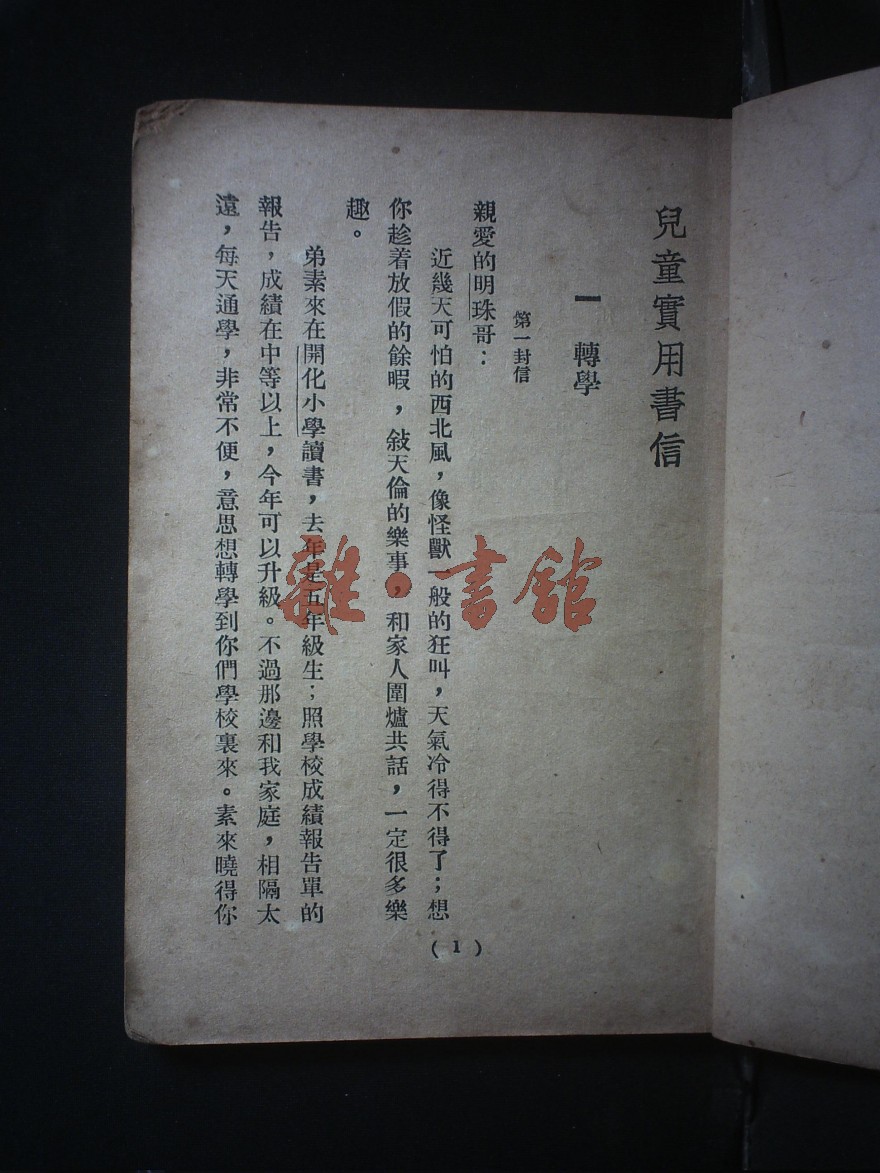 兒童實用書信
一 轉學
第一封信
親愛的明珠哥：
近幾天可怕的西北風，像怪獸一般的狂叫，天氣冷得不得了；想
你趁着放假的餘暇，敍天倫的樂事，和家人圍爐共話，一定很多樂
趣。
弟素來在開化小學讀書，去年是五年級生；照學校成績報告單的
報告，成績在中等以上，今年可以升級。不過那邊和我家庭，相隔太
遠，每天通學，非常不便，意思想轉學到你們學校裏來。素來曉得你
(1)
雜·書館